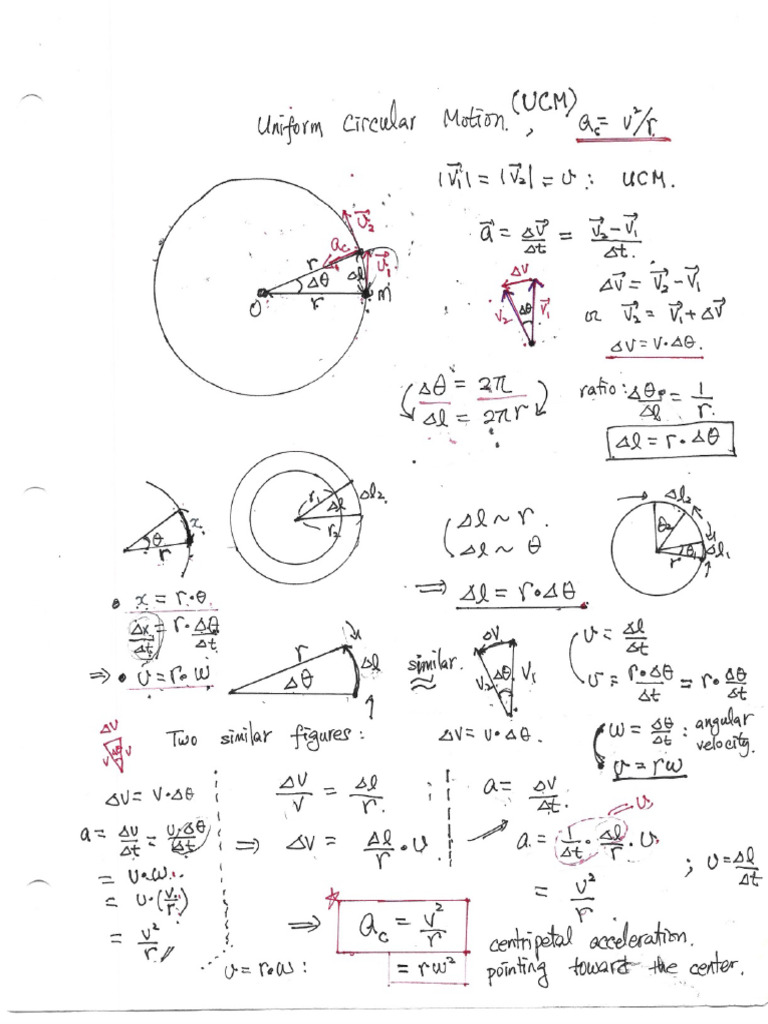 Uniform Circular Motion (UCM), a_c = v²/r
|v⃗₁| = |v⃗₂| = v : UCM.
a⃗ = Δv⃗/Δt = (v⃗₂ - v⃗₁)/Δt.
v⃗₂
a_c
v⃗₁
r
Δθ
Δl
O
r
m
ΔV
V₂
Δθ
V⃗₁
Δv⃗ = v⃗₂ - v⃗₁
or v⃗₂ = v⃗₁ + Δv⃗
Δv = v·Δθ.
Δθ = 2π
Δl = 2πr
ratio: Δθ/Δl = 1/r.
Δl = r·Δθ
x
θ
r
r₁
Δl
Δl₂
r₂
Δl ~ r.
Δl ~ θ
⇒ Δl = r·Δθ
Δl₂
θ₂
θ₁
Δl₁
r
• x = r·θ
Δx/Δt = r·Δθ/Δt
⇒ • v = r·ω
r
Δθ
Δl
similar.
ΔV
V₂
Δθ
V₁
v = Δl/Δt
v = r·Δθ/Δt = r·Δθ/Δt
ω = Δθ/Δt : angular velocity.
v = rω
ΔV
V
V
Two similar figures:
ΔV = v·Δθ.
ΔV = V·Δθ
a = Δv/Δt = v·Δθ/Δt
= v·ω.
= v·(v/r)
= v²/r
ΔV/V = Δl/r ;
⇒ ΔV = Δl/r · v
a = ΔV/Δt.
a = 1/Δt · Δl/r · v
v
= v²/r
; v = Δl/Δt
⇒ a_c = v²/r
v = r·ω : = rω²
centripetal acceleration.
pointing toward the center.